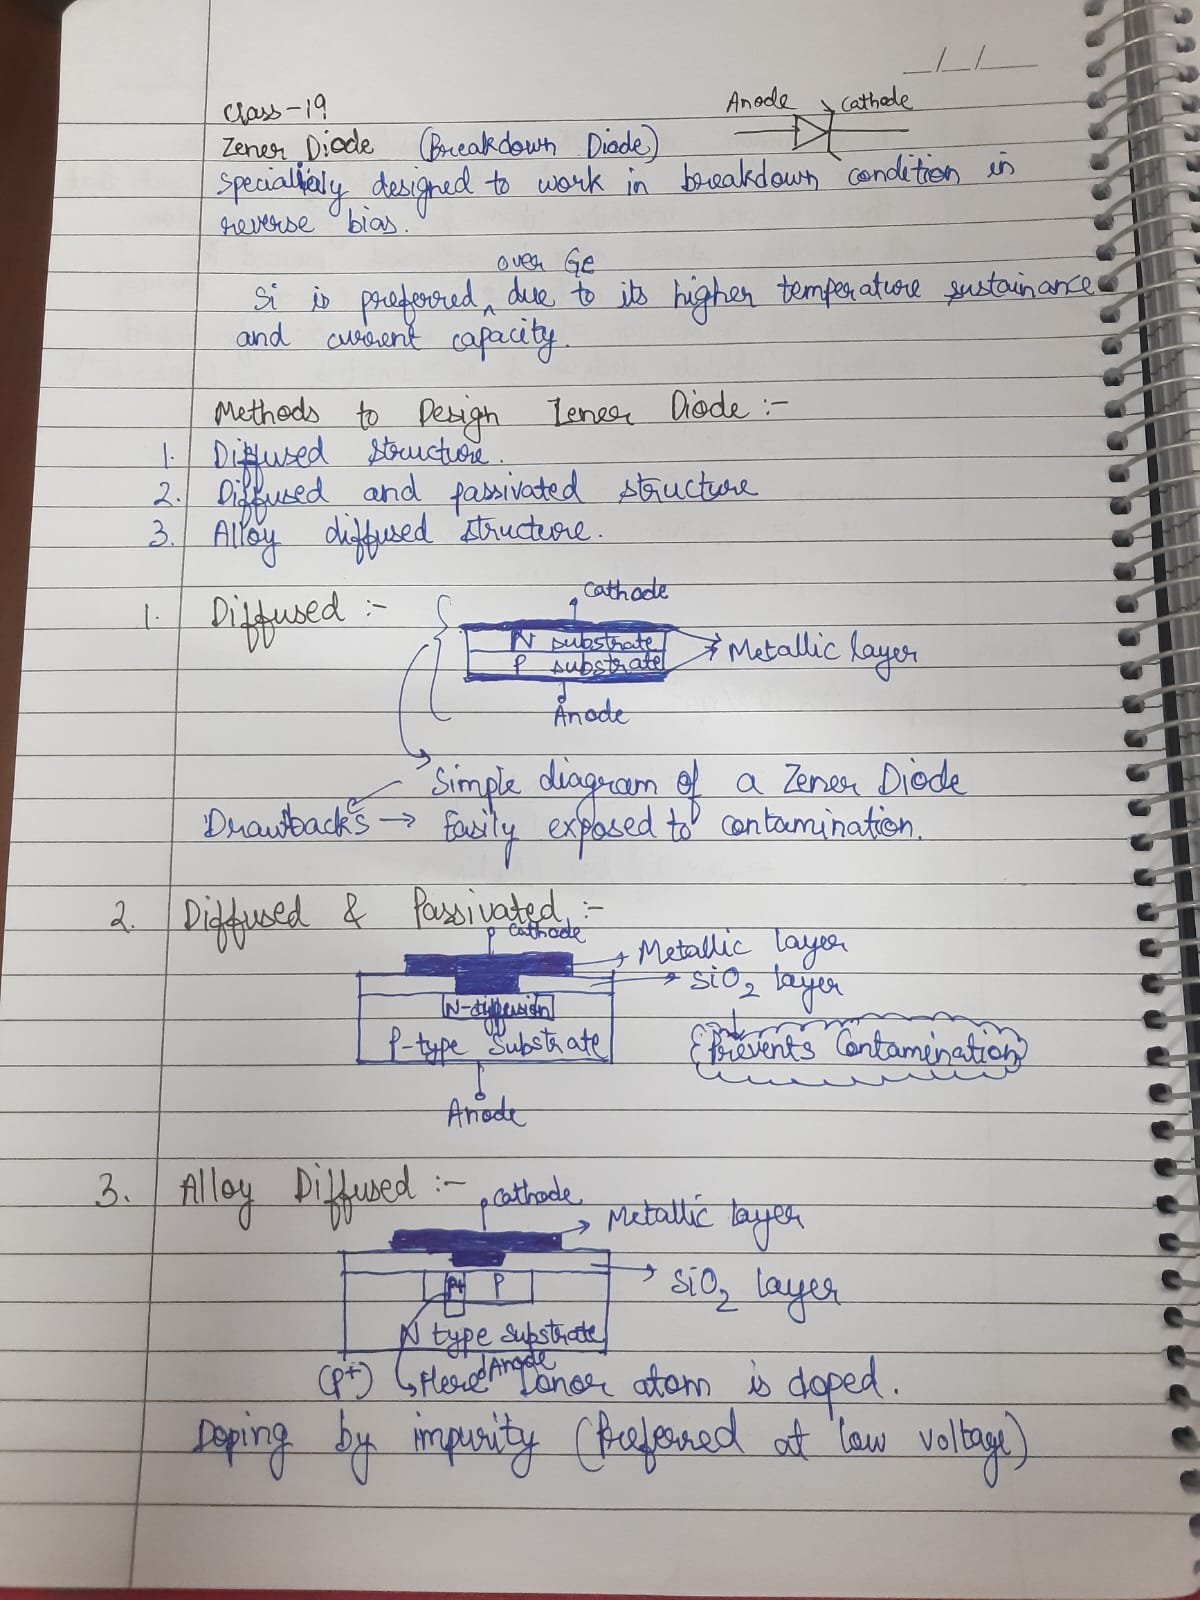 _/_/__
Class-19
Anode Cathode
Zener Diode (Breakdown Diode)
specially designed to work in breakdown condition in
reverse bias.
over Ge
Si is preferred ^ due to its higher temperature sustainance
and current capacity.
Methods to Design Zener Diode :-
1. Diffused structure.
2. Diffused and passivated structure
3. Alloy diffused structure.
1. Diffused :-
Cathode
N substrate
P substrate
Metallic layer
Anode
Simple diagram of a Zener Diode
Drawbacks → Easily exposed to contamination.
2. Diffused & Passivated :-
Cathode
Metallic layer
SiO2 layer
N-diffusion
P-type Substrate
Prevents Contamination
Anode
3. Alloy Diffused :-
Cathode
Metallic layer
SiO2 layer
P+ P
N type substrate
Anode
(P+) Here Donor atom is doped.
Doping by impurity (Preferred at low voltage)